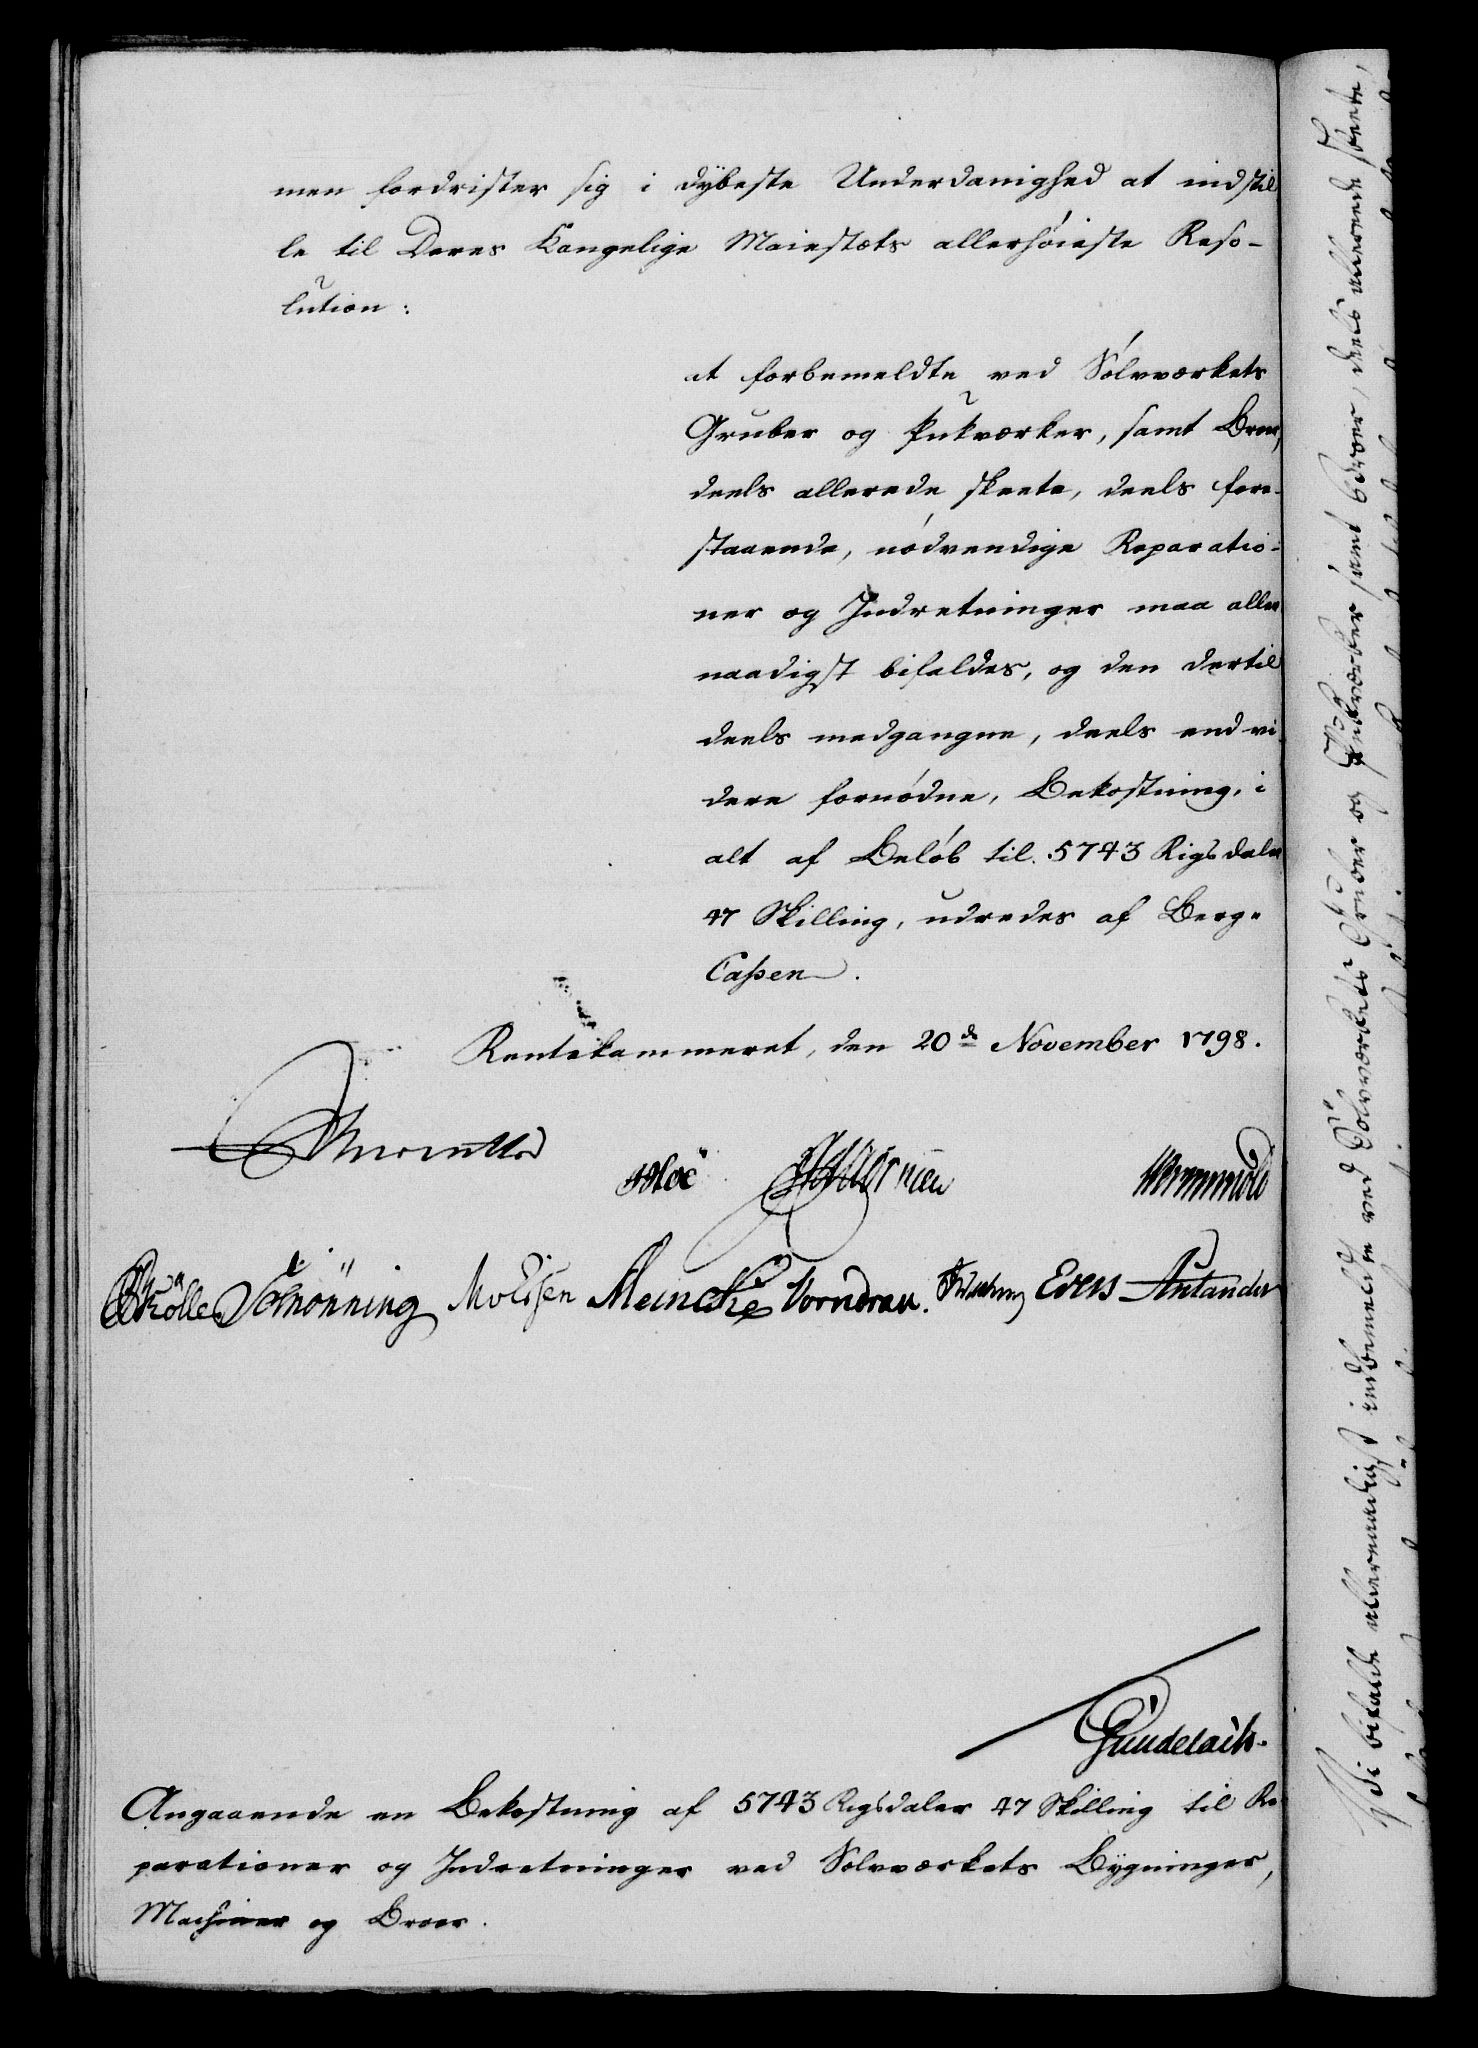 men fordrister sig i dÿbeste Underdanighed at indstil
le til Deres Kongelige Maiestæts allerhöieste Reso-
lution:
at forbemeldte ved Sölvværkets
Gruber og Pukværker, samt Broer,
deels allerede skeete, deels fore-
staaende, nödvendige Reparatio-
ner og Indretninger maa aller
naadigst bifaldes, og den dertil
deels medgangne, deels end vi-
dere fornödne, Bekostning, i
alt af Belöb til 5743 Rigsdaler
47 Skilling, udredes af Berg-
Cassen.
Rentekammeret, den 20de November 1798.
Schönning Meincke Vorndran. Evers
Gundelach.
Angaaende en Bekostning af 5743 Rigsdaler 47 Skilling til Re-
parationer og Indretninger ved Sölvværkets Bÿgninger,
Machiner og Broer.
Vi bifalde allernaadigst indbemeldte ved Sölvværkets Gruber og Pukværker samt Broer, deels allerede skeete,